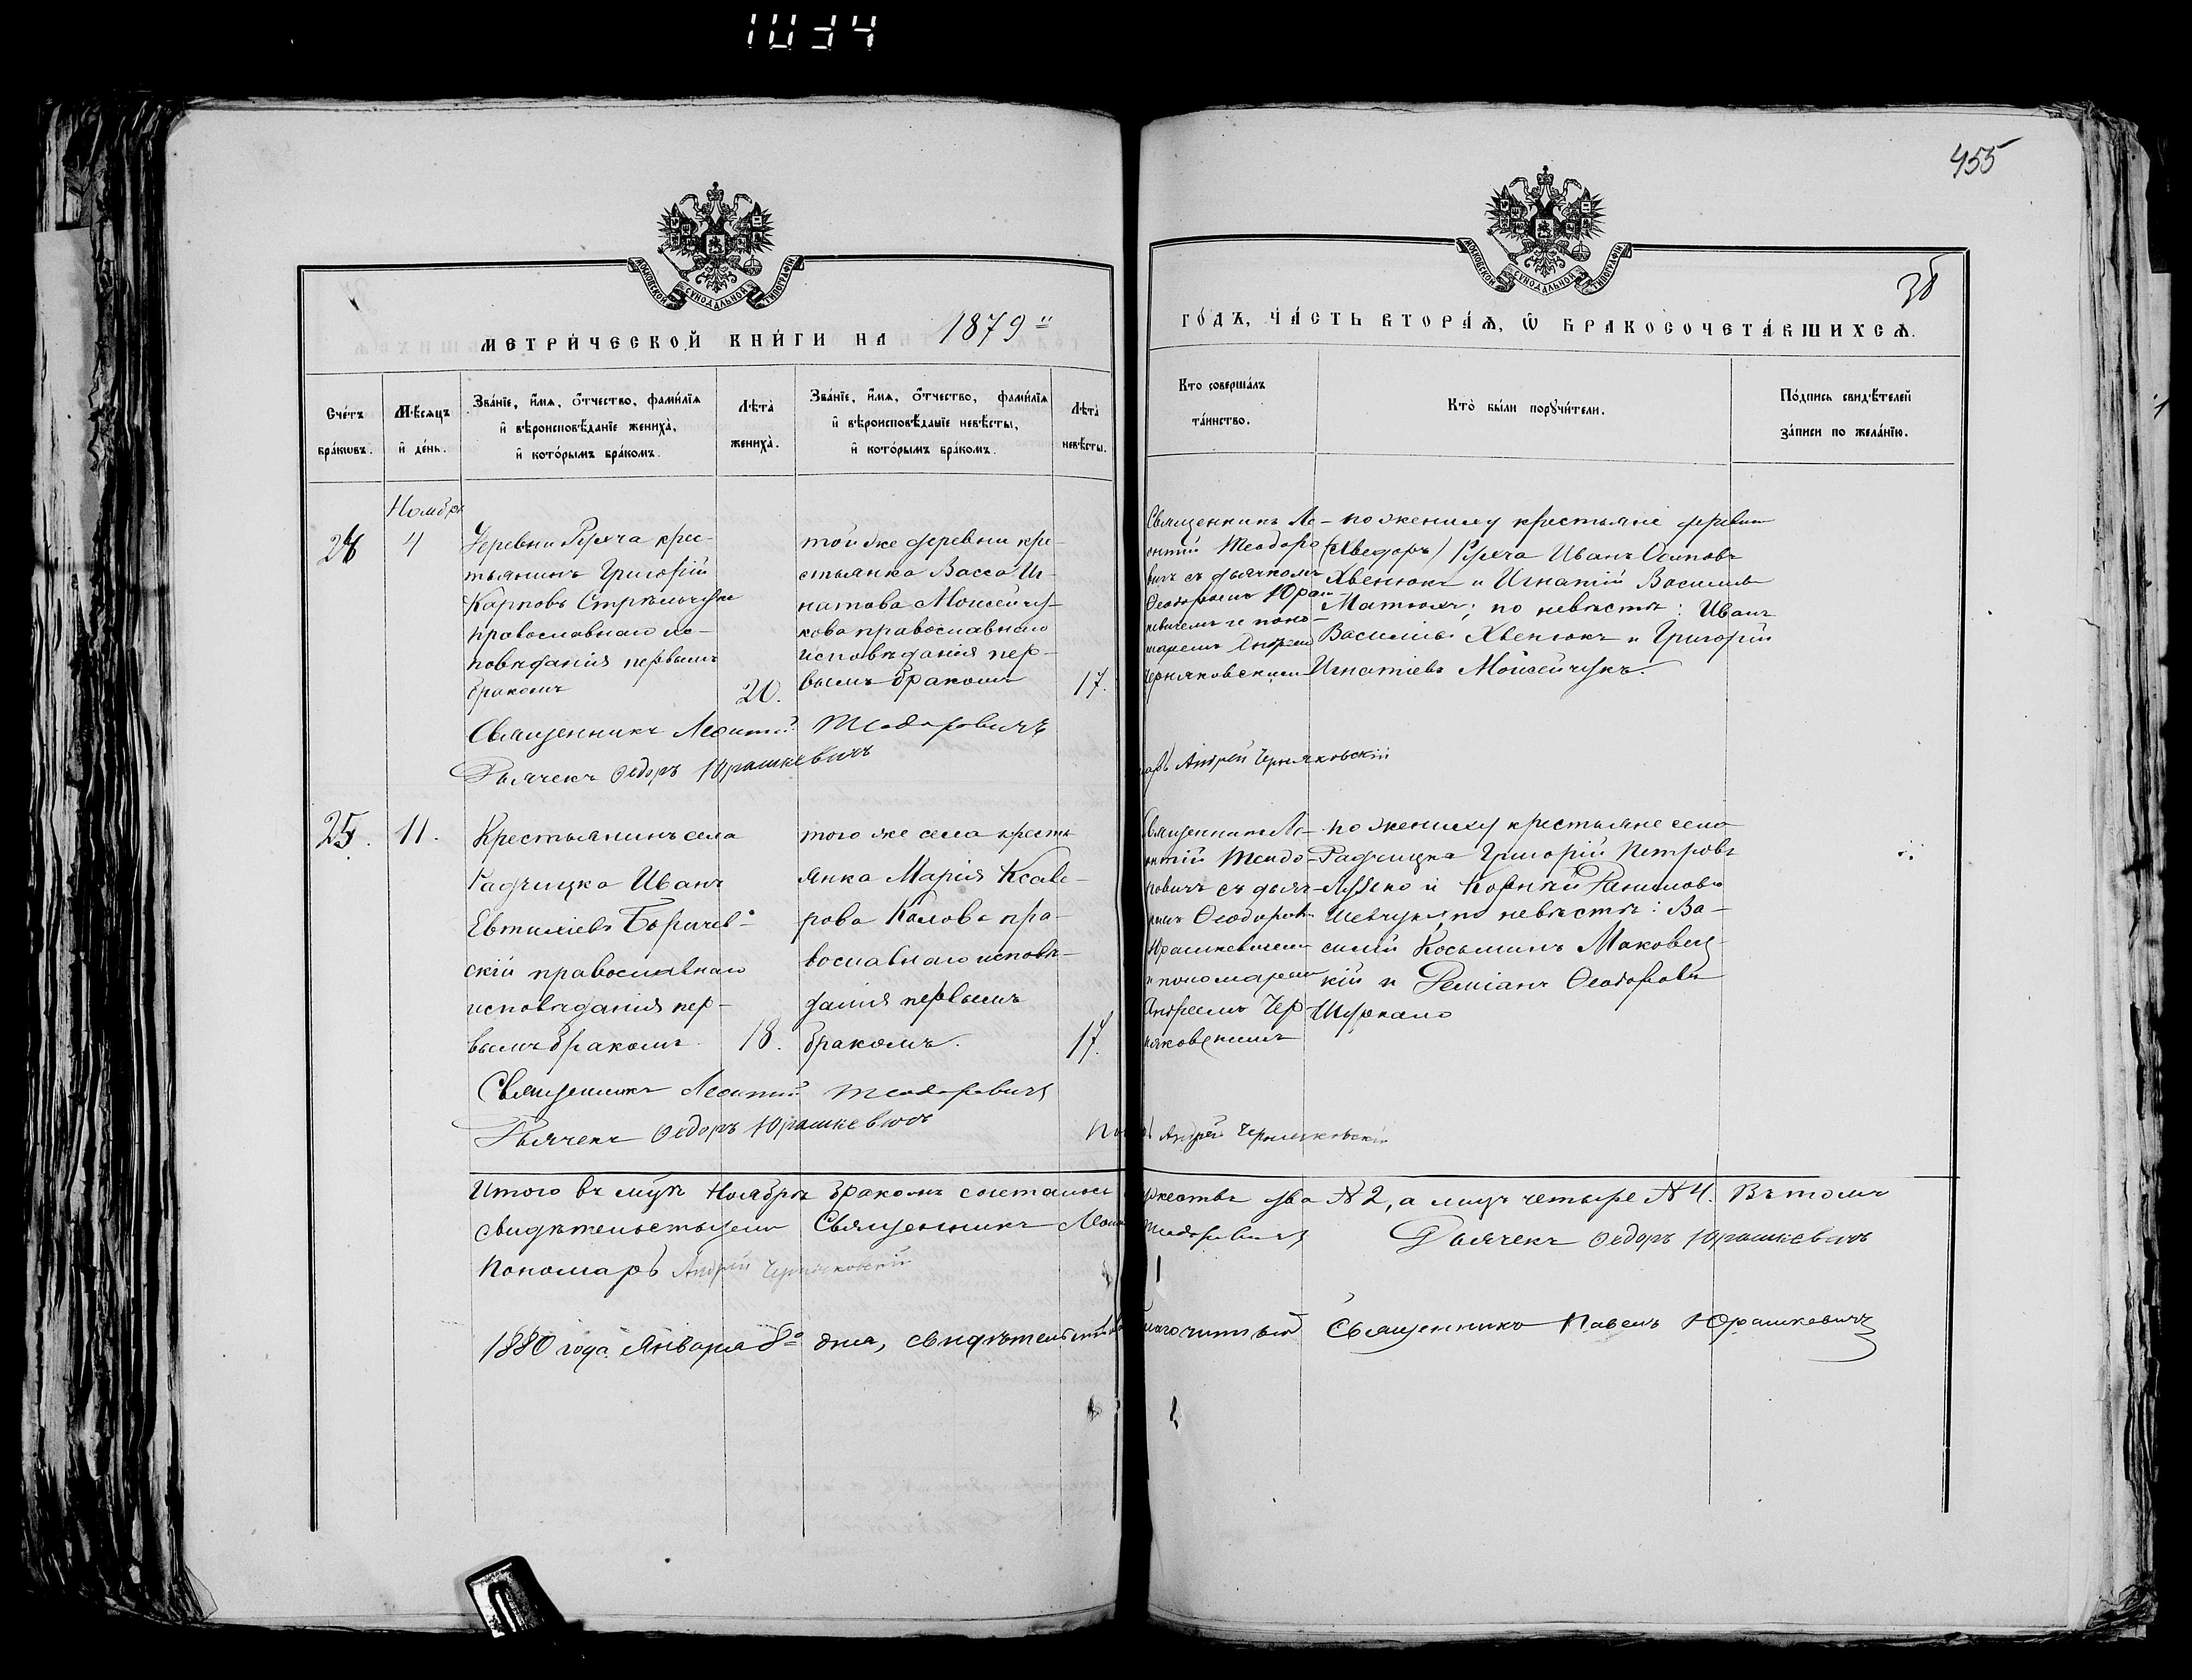 1034
455
38
МОСКОВСКОЙ СѴНОДАЛЬНОЙ ТИПОГРАФІИ
МОСКОВСКОЙ СѴНОДАЛЬНОЙ ТИПОГРАФІИ
МЕТРИ́ЧЕСКОЙ КНИ́ГИ НА 1879
ГО́ДЪ, ЧА́СТЬ ВТОРА́Ѧ, Ѽ БРАКОСОЧЕТА́ВШИХСѦ.
Сче́тъ бра́кѡвъ.
Мѣ́сяцъ и҆ де́нь.
Зва́нїе, и҆́мя, ѻ҆́тчество, фами́лїя
и҆ вѣроисповѣ́данїе жениха̀,
и҆ кото́рымъ бра́комъ.
Лѣта̀ жениха̀.
Зва́нїе, и҆́мя, ѻ҆́тчество, фами́лїя
и҆ вѣроисповѣ́данїе невѣ́сты,
и҆ кото́рымъ бра́комъ.
Лѣта̀ невѣ́сты.
Кто соверша́лъ та́инство.
Кто̀ бы́ли порꙋчи́тели.
По́дпись свидѣ́телей за́писи по жела́нїю.
Ноября
24
4
Деревни Рѣчча крес-
тьянинъ Григорій
Карповъ
православнаго ис-
повѣданія первымъ
бракомъ
20.
той же деревни кре
стьянка Васса Иг-
натова Моисейчу-
кова православнаго
исповѣданія пер-
вымъ бракомъ
17.
Священникъ Ле-
онтій Теодоро
вичъ съ дьячкомъ
Ѳеодоромъ Юраш-
кевичемъ и поно-
маремъ Андреем
Черняковскимъ
по жениху крестьяне деревни
Иванъ Осиповъ
Хвенюкъ и Игнатій Васильевъ
Матюхъ; по невѣстѣ: Иванъ
Васильевъ Хвенюкъ и Григорій
Игнатіевъ Моисейчукъ.
Священникъ Леонтій Теодоровичъ
Дьячекъ Ѳедоръ Юрашкевичъ
Андрей Черняковскій
25.
11.
Крестьянинъ села
Радчицка Иванъ
Евтихіевъ Боричев-
скій православнаго
исповѣданія пер-
вымъ бракомъ
18.
того же села кресть
янка Марія Ксаве-
рова Калова пра-
вославнаго исповѣ-
данія первымъ
бракомъ.
17.
Священникъ Ле-
онтій Теодо-
ровичъ съ дьяч-
комъ Ѳеодоромъ
Юрашкевичемъ
и пономаремъ
Андреемъ Чер-
няковскимъ
по жениху крестьяне села
Радчицка Григорій Петровъ
и Корнѣй
Шевчукъ, по невѣстѣ: Ва-
силій Косьминъ Маковец-
кій и Деміанъ Ѳеодоровъ
Священникъ Леонтій Теодоровичъ
Дьячекъ Ѳедоръ Юрашкевичъ
Андрей Черняковскій
Итого въ м-цѣ Ноябрѣ бракомъ два № 2, а лицъ четыре № 4. Въ томъ
свидѣтельствуемъ Священникъ Леонтій Теодоровичъ Дьячекъ Ѳедоръ Юрашкевичъ
Пономарь Андрей Черняковскій
1880 года Января 8го дня, свидѣтельствовалъ Благочинный Священникъ Павелъ Юрашкевичъ